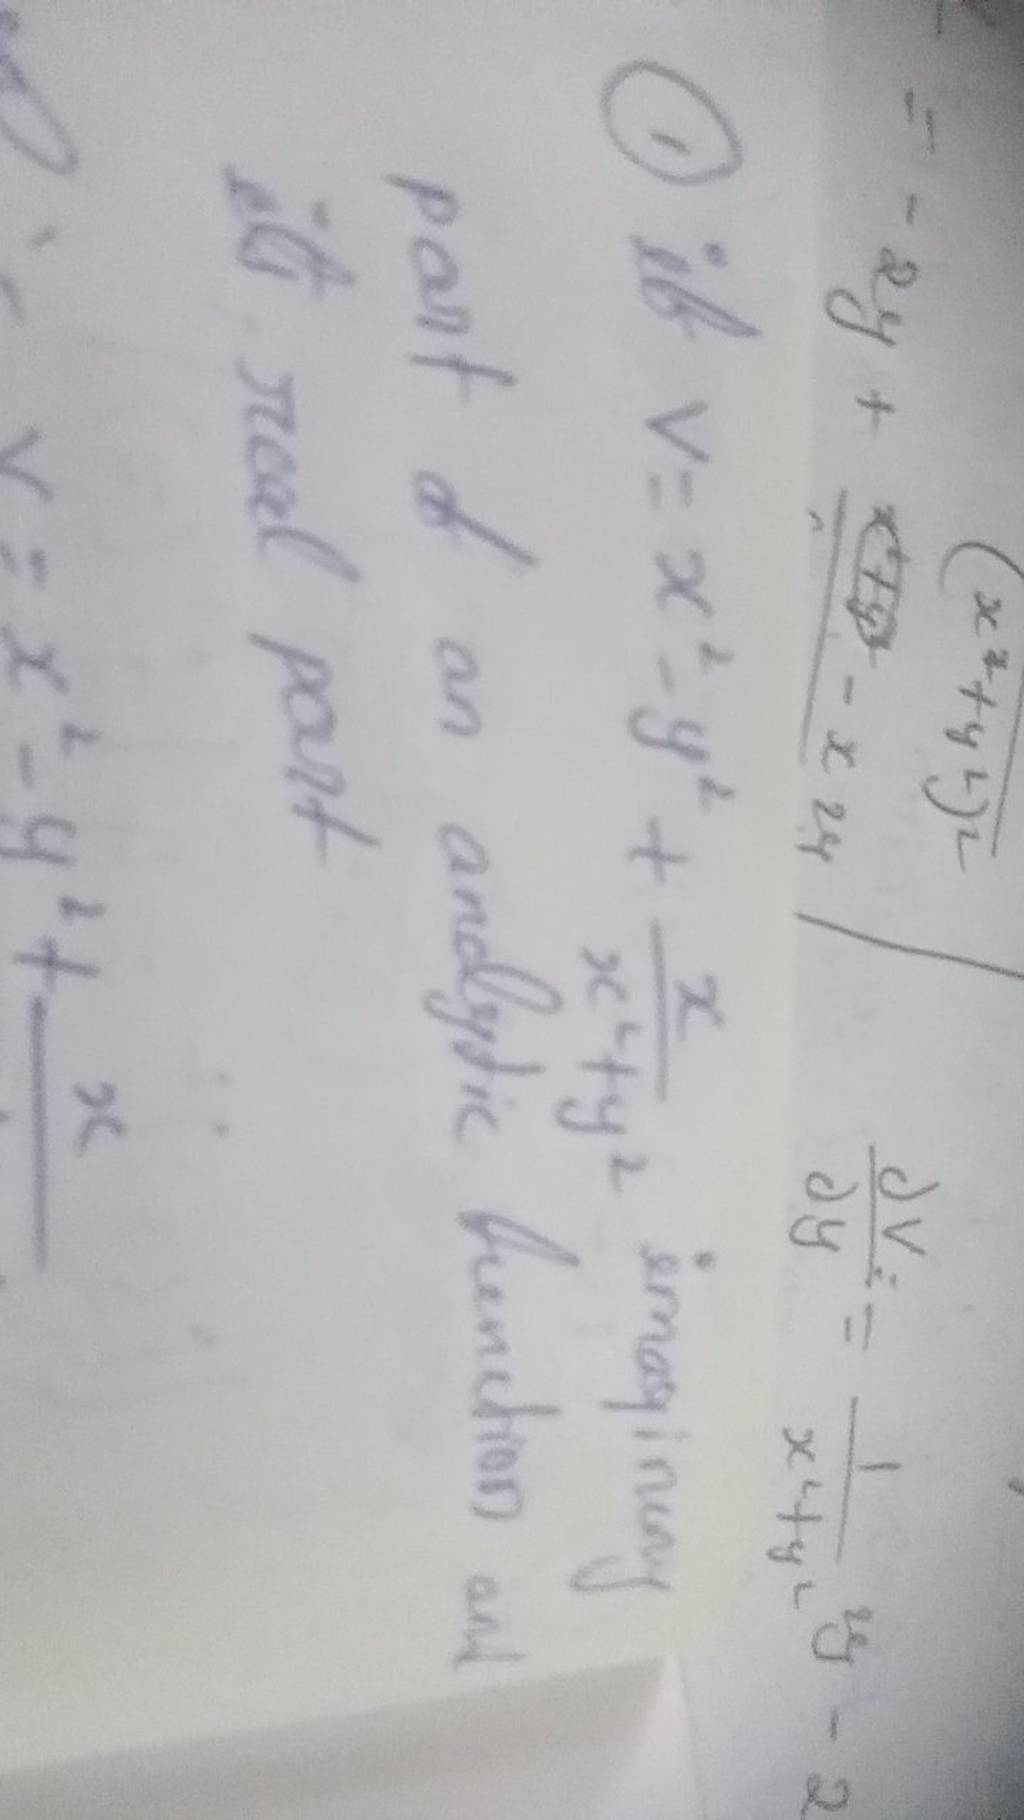 (x²+y²)²
= - 2y + - x 2y
∂V/∂y = 1/(x²+y²) 2y - 2
① if V = x² - y² + x/(x²+y²) imaginury
part of an analytic function and
its real part
V = x² - y² + x